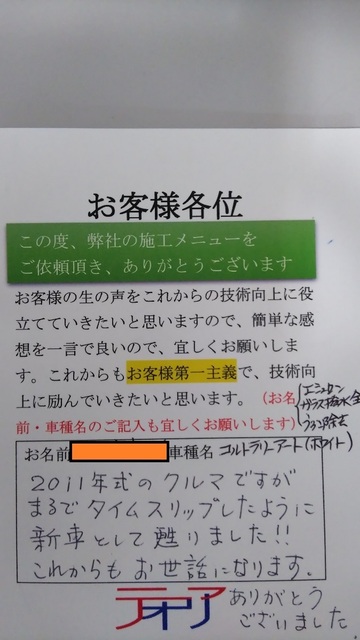 お客様各位
この度、弊社の施工メニューを
ご依頼頂き、ありがとうございます
お客様の生の声をこれからの技術向上に役
立てていきたいと思いますので、簡単な感
想を一言で良いので、宜しくお願いしま
す。これからもお客様第一主義で、技術向
上に励んでいきたいと思います。（お名
前・車種名のご記入も宜しくお願いします）
ガラス撥水全
ウロコ除去
お名前 車種名 コルトラリーアート(ホワイト)
2011年式のクルマですが
まるでタイムスリップしたように
新車として甦りました!!
これからもお世話になります。
ありがとう
ございました